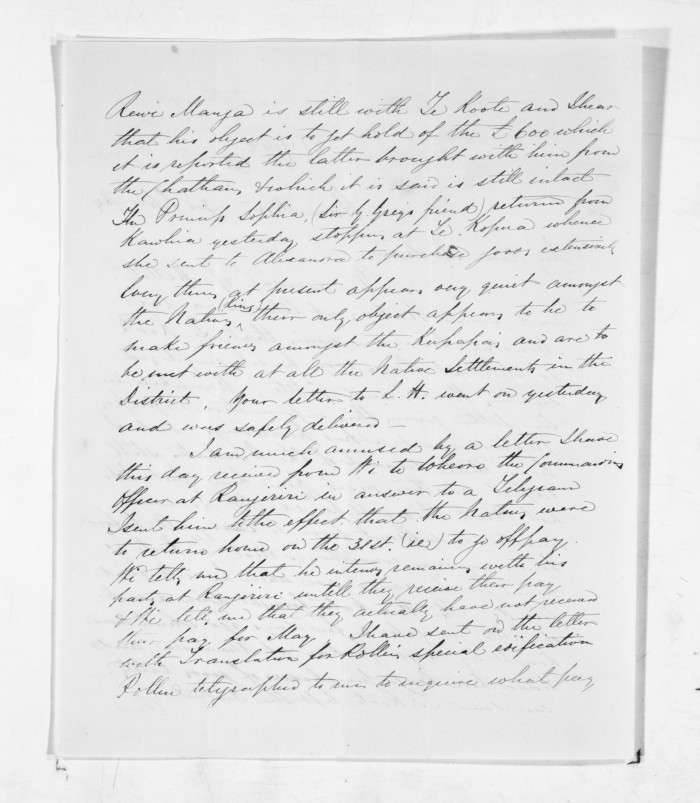 Rewi Manga is still with Te Kooti and I hear
that his object is to get hold of the £600 which
it is reported the latter brought with him from
the Chathams & which it is said is still intact
The Princess Sophia, (Sir G. Greys friend) returned from
Kawhia yesterday stopping at Te Kopua whence
she sent to Alexandra to purchase goods extensively
Every thing at present appears very quiet amongst
the Natives (Kings) their only object appears to be to
make friends amongst the Kupapas and are to
be met with at all the Native Settlements in the
District. Your letter to L. H. went on yesterday
and was safely delivered –
I am much amused by a letter I have
this day received from Wi te Wheoro the Commanding
Officer at Rangiriri in answer to a Telegram
I sent him to the effect that the Natives were
to return home on the 31st. (ie) to go off pay.
Wi tells me that he intends remaining with his
party at Rangiriri untill they receive their pay
& Wi tells me that they actually have not received
their pay for May. I have sent on the letter
with Translation for Rolleston's special edification
Pollen telegraphed to me to inquire what pay